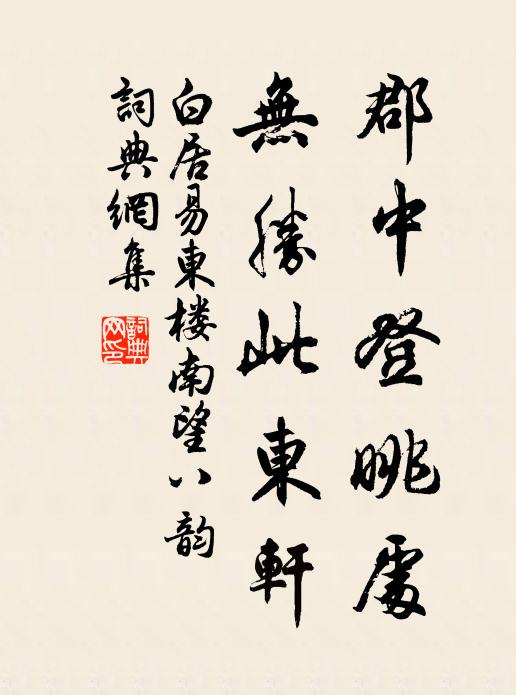 郡中登眺處
無勝此東軒
白居易東楼南望八韵
詞典網集
詞典網印